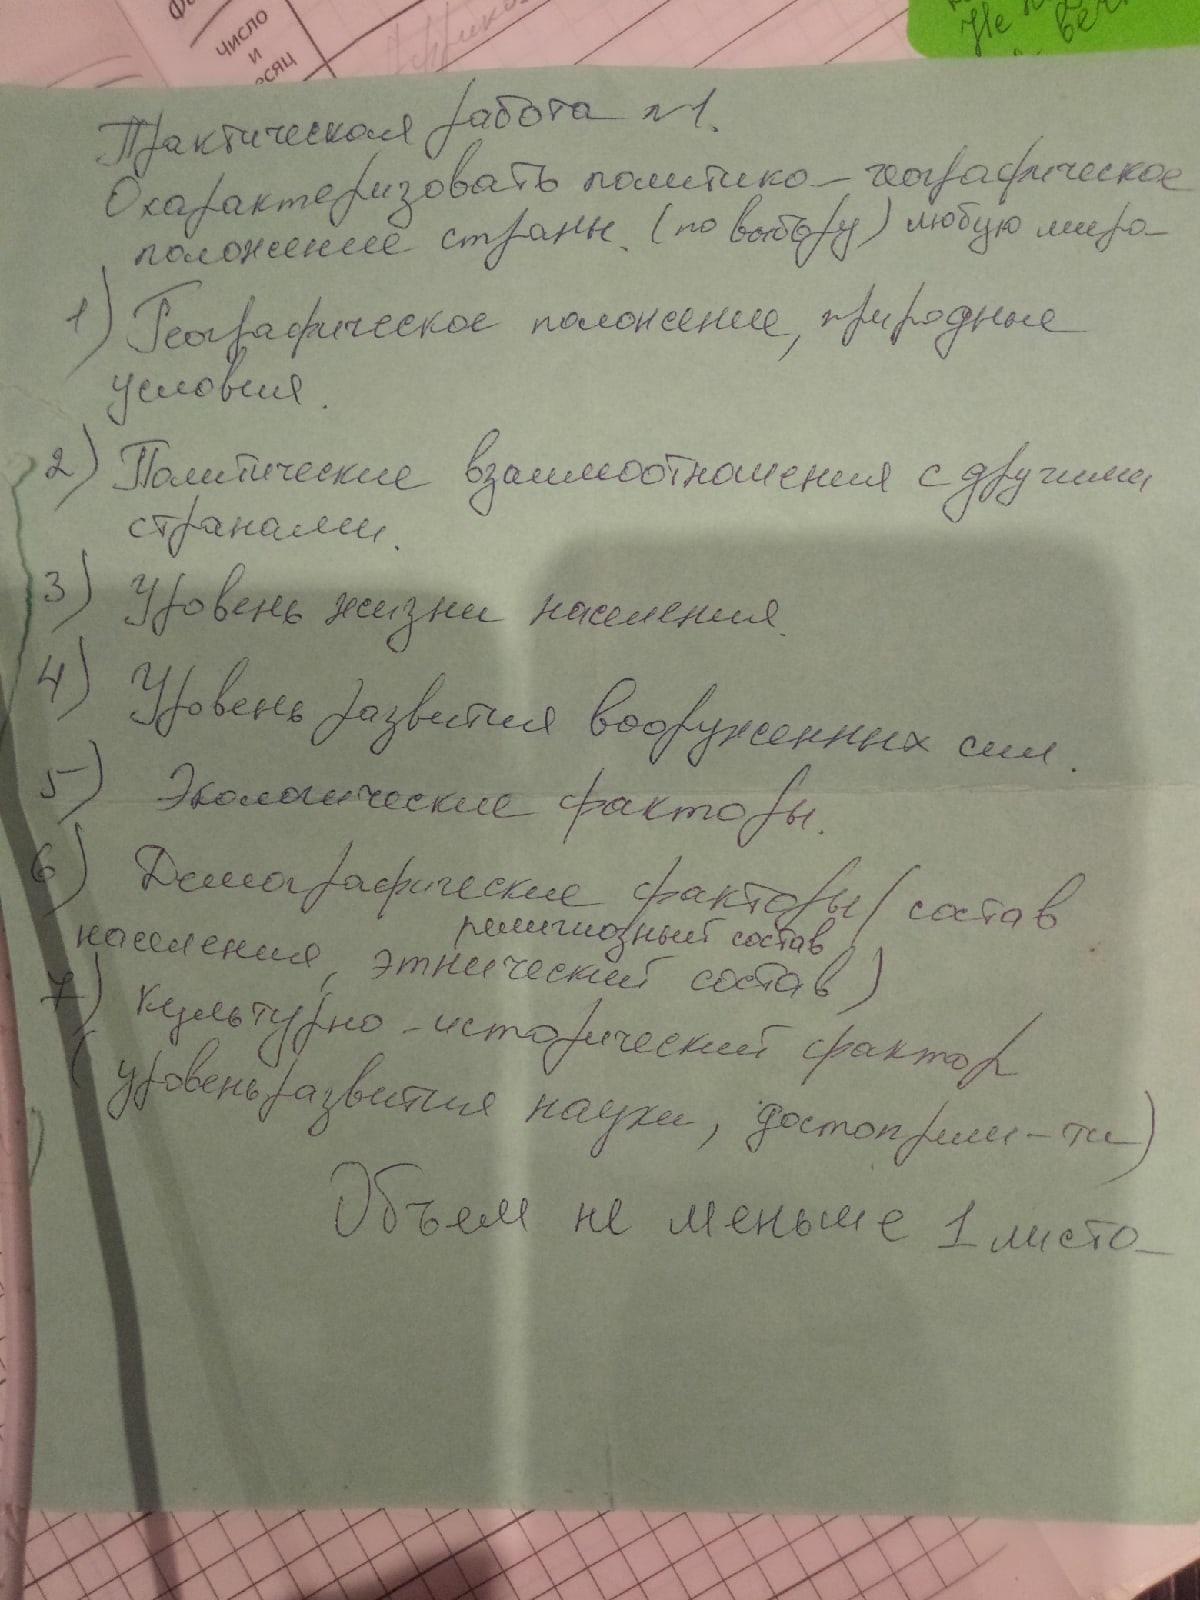 число
и
есяц
Не
Практическая работа №1.
Охарактеризовать политико-географическое
положение страны. (по выбору) любую мира
1) Географическое положение, природные
условия.
2) Политические взаимоотношения с другими
странами.
3) Уровень жизни населения.
4) Уровень развития вооруженных сил.
5) Экологические факторы.
6) Демографические факторы (состав
религиозный состав
населения, этнический состав)
7) Культурно-исторический фактор
(уровень развития науки, достоприм-ти)
Объем не меньше 1 листа